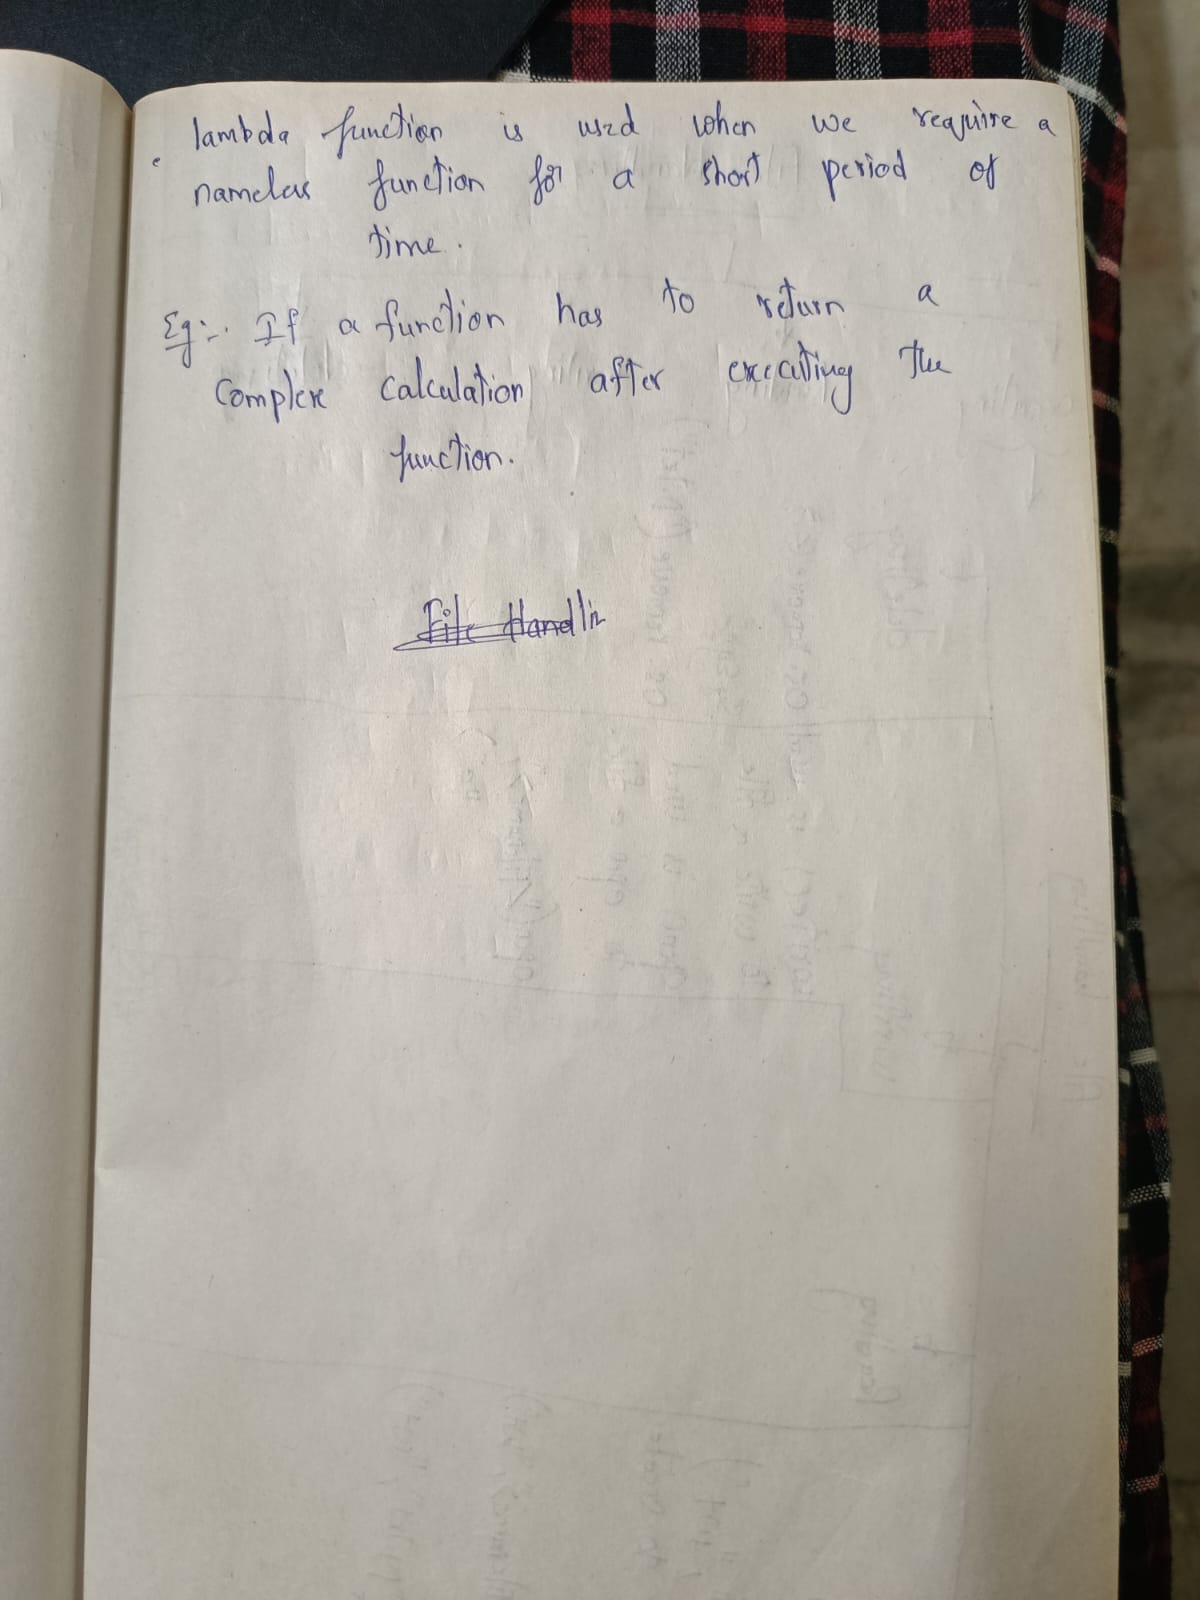 . lambda function is used when we require a
nameless function for a short period of
time.
Eg:- If a function has to return a
Complex calculation after executing the
function.
File Handlin